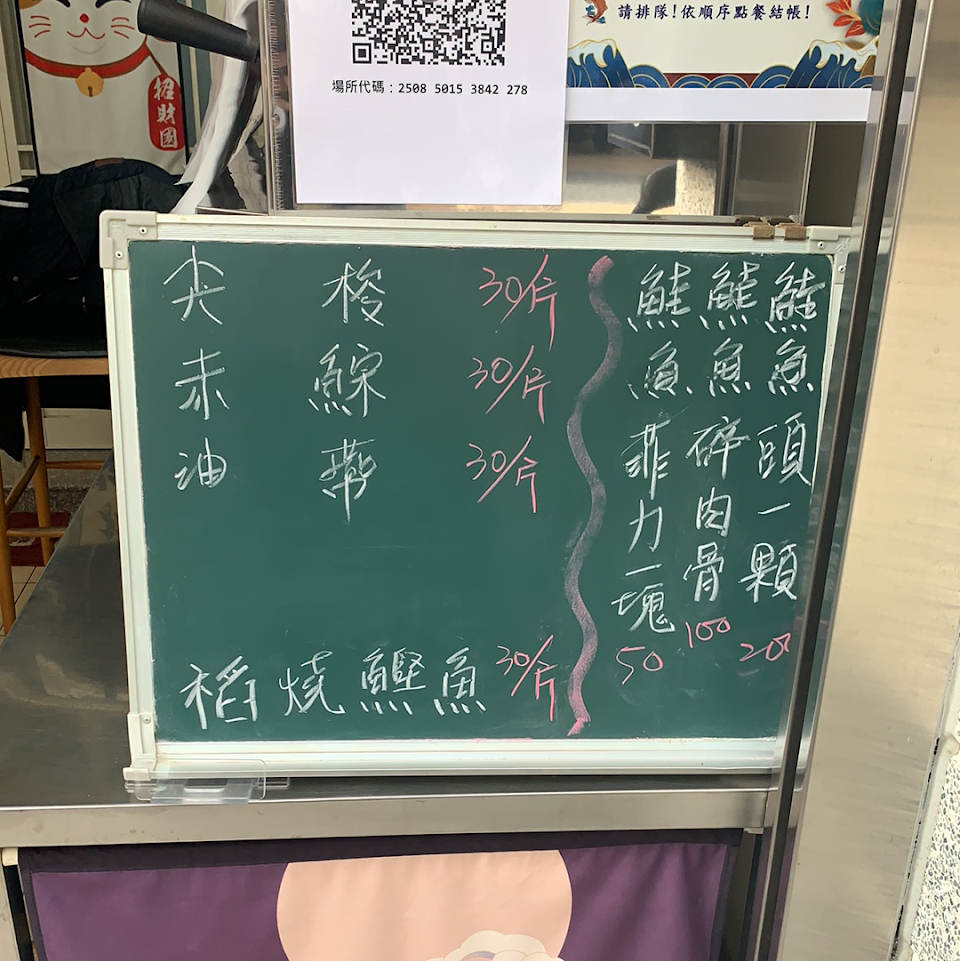 請排隊!依順序點餐結帳!
場所代碼：2508 5015 3842 278
招財圓
尖梭 30/片
赤鯮 30/片
油帶 30/片
稻燒鰹魚 30/片
鮭魚頭一顆 200
鮭魚碎肉骨 100
鮭魚菲力一塊 50